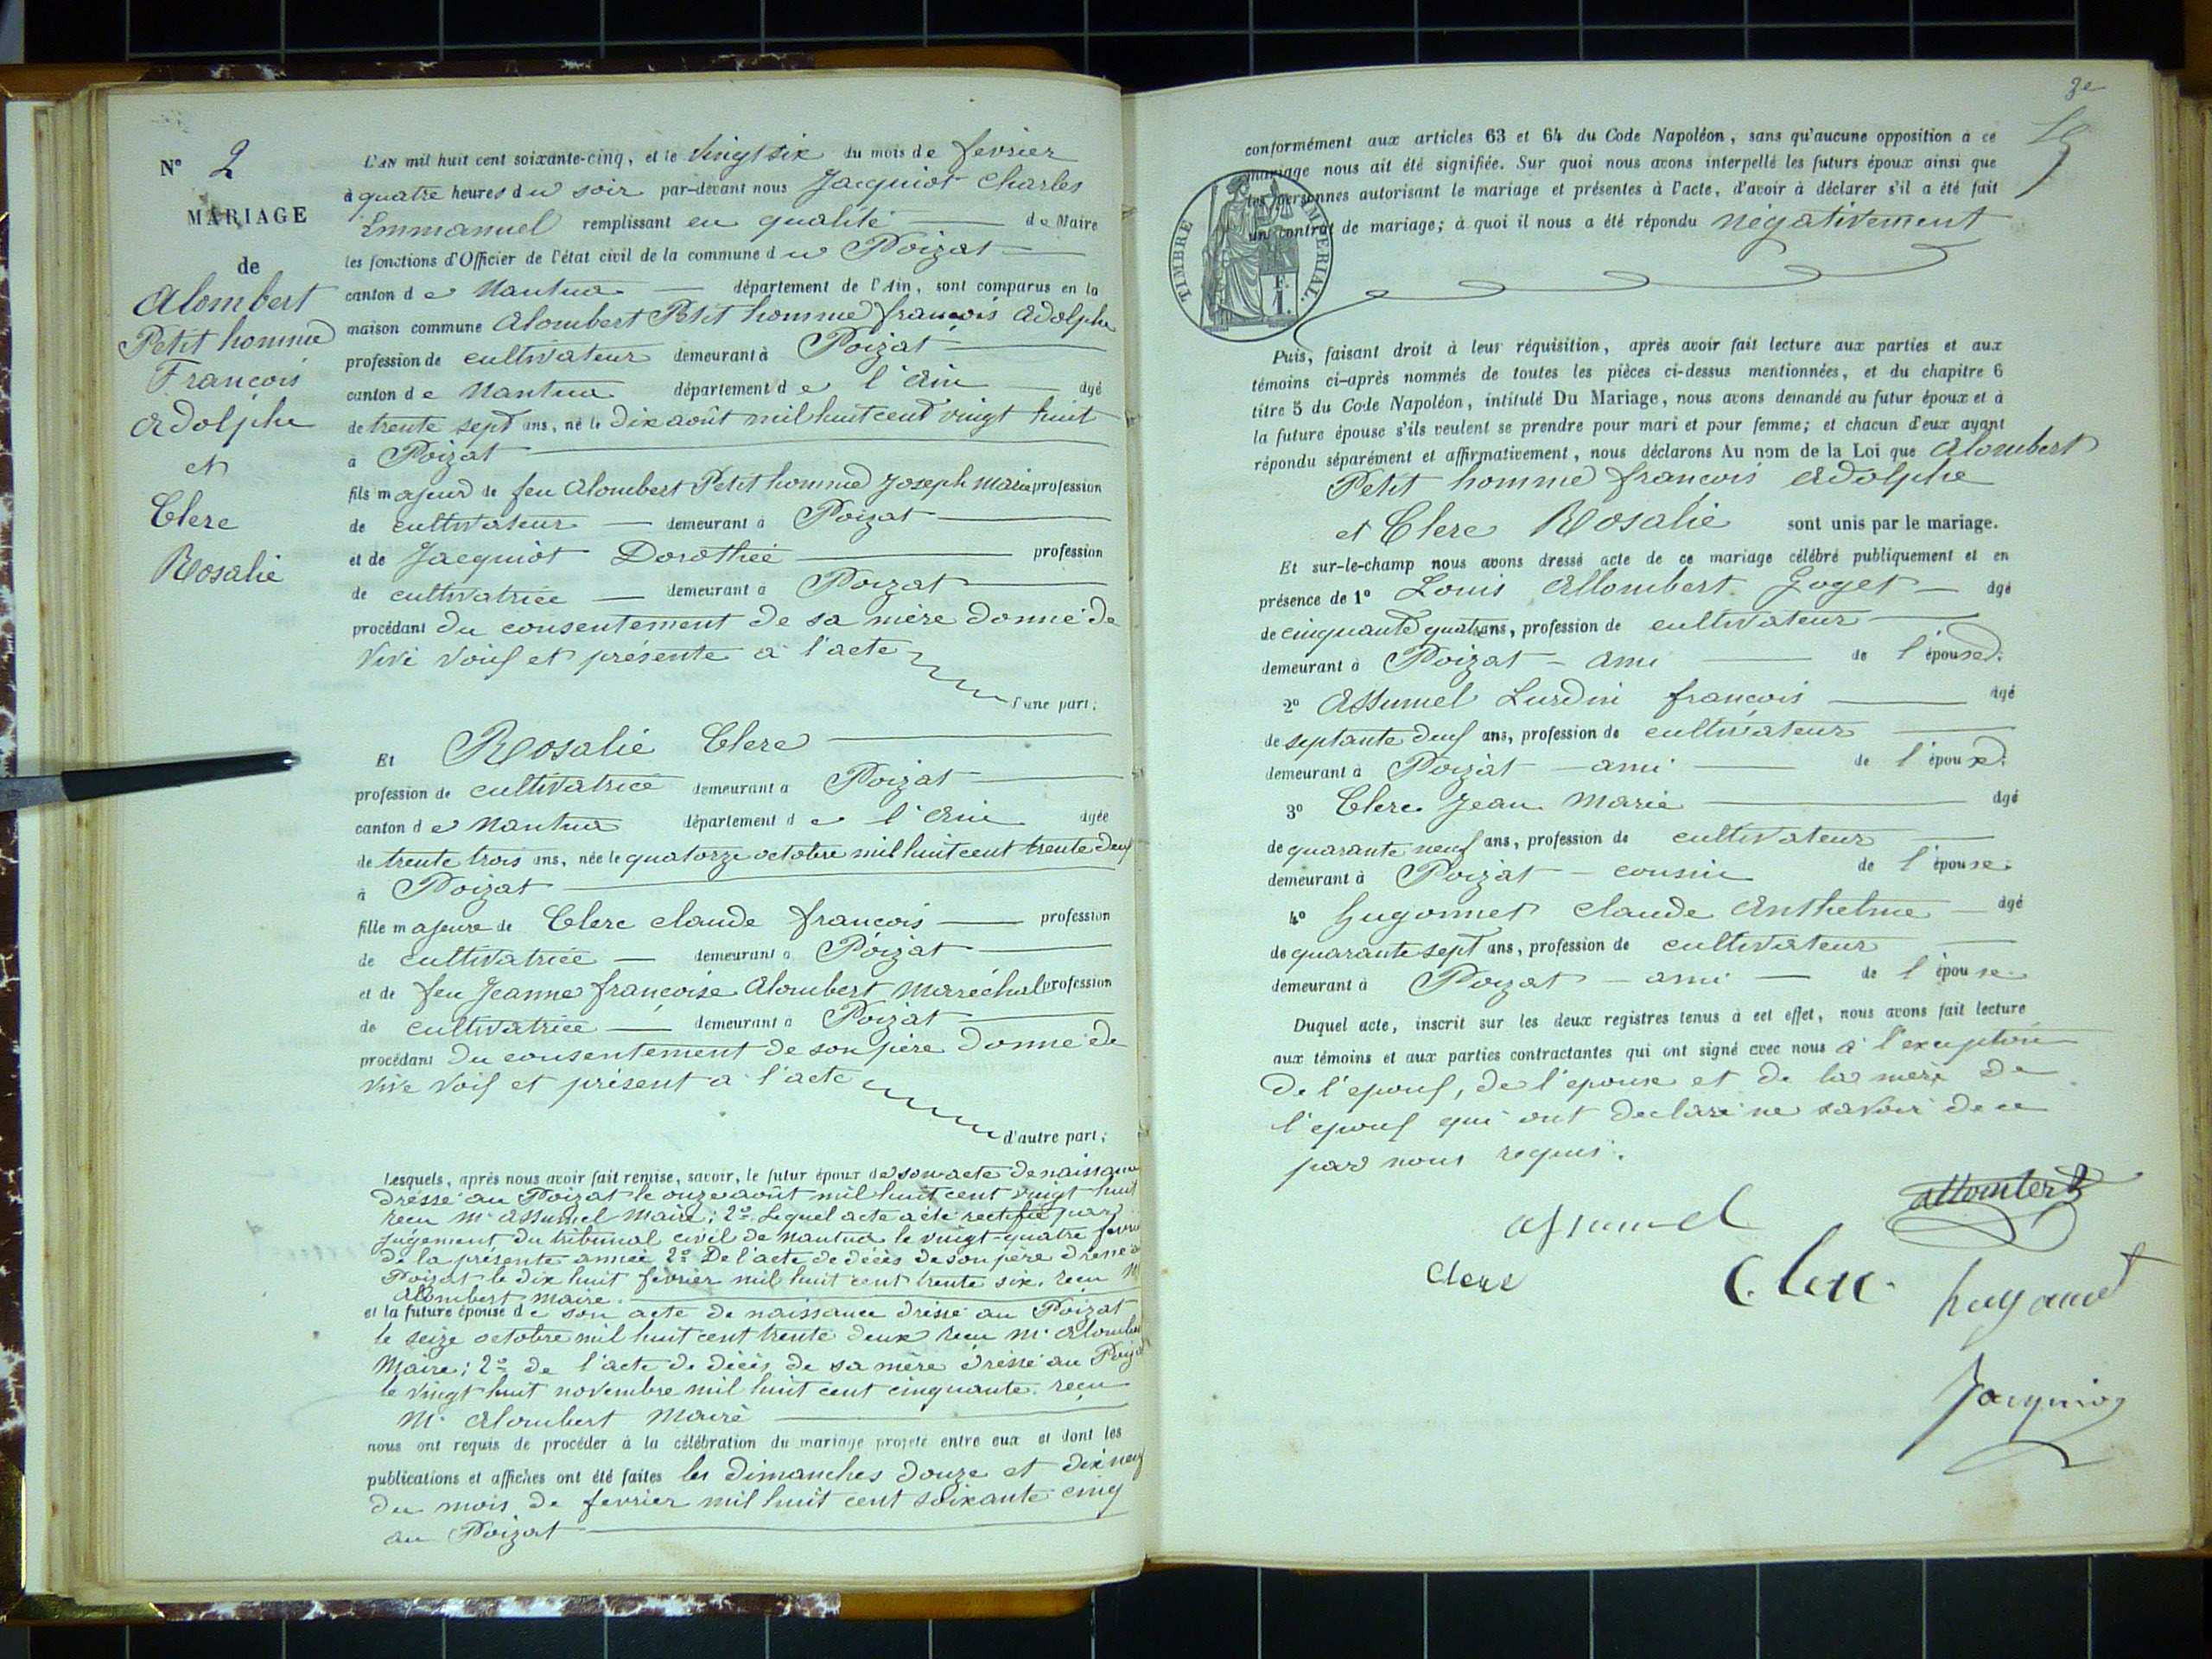 N° 2
MARIAGE
de
Alombert
Petit homme
François
Adolphe
et
Clerc
Rosalie
L'AN mil huit cent soixante-cinq, et le vingt six du mois de fevrier
à quatre heures du soir par-devant nous Jacquiot Charles
Emmanuel remplissant en qualité de Maire
les fonctions d'Officier de l'état civil de la commune du Poizat
canton de Nantua département de l'Ain, sont comparus en la
maison commune Alombert Petit homme françois Adolphe
profession de cultivateur demeurant à Poizat
canton de Nantua département de l'Ain âgé
de trente sept ans, né le dix août mil huit cent vingt huit
à Poizat
fils majeur de feu Alombert Petit homme Joseph Marie profession
de cultivateur demeurant à Poizat
et de Jacquiot Dorothée profession
de cultivatrice demeurant à Poizat
procédant du consentement de sa mère donné de
vive voix et presente à l'acte
d'une part;
Et Rosalie Clerc
profession de cultivatrice demeurant à Poizat
canton de Nantua département de l'Ain âgée
de trente trois ans, née le quatorze octobre mil huit cent trente deux
à Poizat
fille majeure de Clerc claude françois profession
de cultivatrice demeurant à Poizat
et de feu Jeanne françoise Alombert Maréchal profession
de cultivatrice demeurant à Poizat
procédant du consentement de son père donné de
vive voix et présent a l'acte
d'autre part;
Lesquels, après nous avoir fait remise, savoir, le futur époux de son acte de naissance
dressé au Poizat le onze août mil huit cent vingt huit
recu Mr Assumel Maire; 2° Lequel acte a été rectifié par
Jugement du tribunal civil de Nantua le vingt-quatre fevrier
de la présente année 2° De l'acte de décès de son père dressé au
Poizat le dix huit fevrier mil huit cent trente six. recu Mr
Alombert Maire.
et la future épouse de son acte de naissance dressé au Poizat
le seize octobre mil huit cent trente deux recu Mr Alombert
Maire; 2° de l'acte de décès de sa mère dressé au Poizat
le vingt huit novembre mil huit cent cinquante. reçu
Mr Alombert Maire
nous ont requis de procéder à la célébration du mariage projeté entre eux et dont les
publications et affiches ont été faites les dimanches douze et dix neuf
du mois de fevrier mil huit cent soixante cinq
au Poizat
conformément aux articles 63 et 64 du Code Napoléon, sans qu'aucune opposition à ce
mariage nous ait été signifiée. Sur quoi nous avons interpellé les futurs époux ainsi que
les personnes autorisant le mariage et présentes à l'acte, d'avoir à déclarer s'il a été fait
un contrat de mariage; à quoi il nous a été répondu négativement
TIMBRE IMPERIAL.
Puis, faisant droit à leur réquisition, après avoir fait lecture aux parties et aux
témoins ci-après nommés de toutes les pièces ci-dessus mentionnées, et du chapitre 6
titre 5 du Code Napoléon, intitulé Du Mariage, nous avons demandé au futur époux et à
la future épouse s'ils veulent se prendre pour mari et pour femme; et chacun d'eux ayant
répondu séparément et affirmativement, nous déclarons Au nom de la Loi que Alombert
Petit homme françois Adolphe
et Clerc Rosalie sont unis par le mariage.
Et sur-le-champ nous avons dressé acte de ce mariage célébré publiquement et en
présence de 1° Louis Allombert Goget âgé
de cinquante quatre ans, profession de cultivateur
demeurant à Poizat - ami de l'épouse.
2° Assumel Lurdin françois âgé
de septante deux ans, profession de cultivateur
demeurant à Poizat - ami de l'époux.
3° Clerc Jean Marie âgé
de quarante neuf ans, profession de cultivateur
demeurant à Poizat - cousin de l'épouse.
4° Hugonnet Claude Anthelme âgé
de quarante sept ans, profession de cultivateur
demeurant à Poizat - ami de l'épouse.
Duquel acte, inscrit sur les deux registres tenus à cet effet, nous avons fait lecture
aux témoins et aux parties contractantes qui ont signé avec nous à l'exception
de l'epoux, de l'epouse et de la mère de
l'epoux qui ont declaré ne savoir de ce
par nous requis.
Assumel
Allombert
Clerc
Clerc
hugonnet
Jacquiot